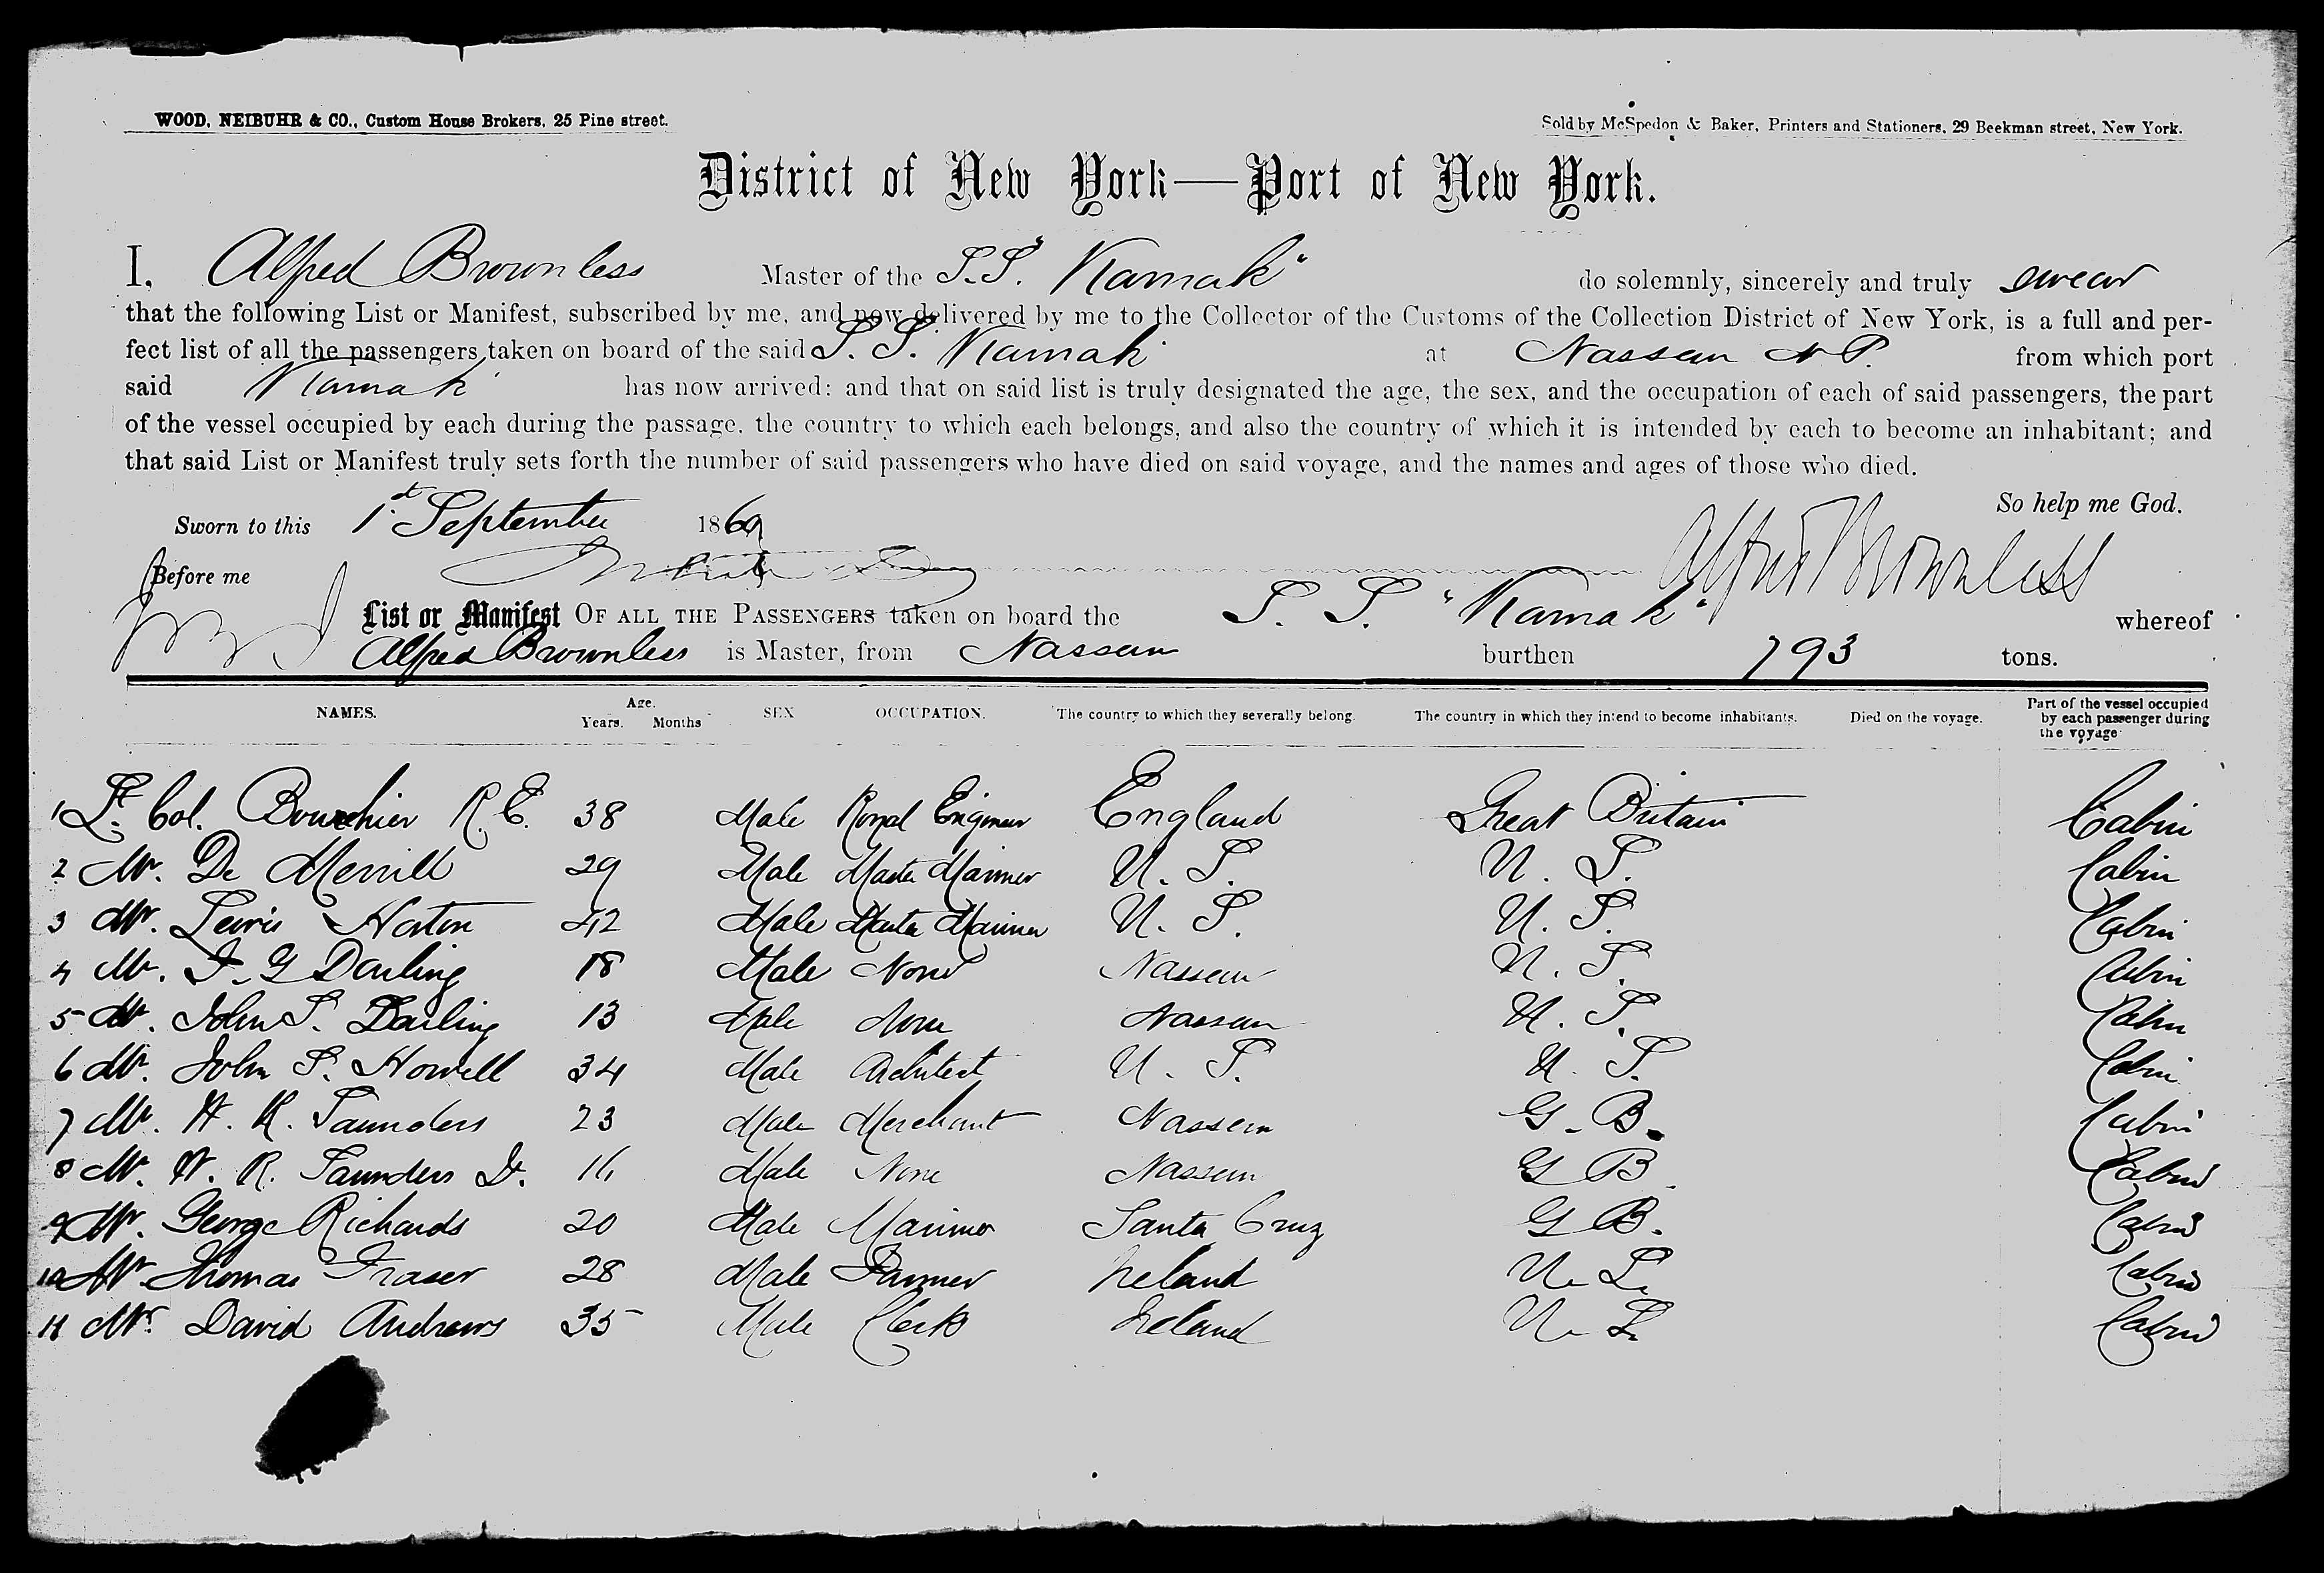 WOOD, NEIBUHR & CO., Custom House Brokers, 25 Pine street.
Sold by McSpedon & Baker, Printers and Stationers, 29 Beekman street, New York.
District of New York—Port of New York.
I, Alfred Brownless Master of the S.S. "Karnak" do solemnly, sincerely and truly swear
that the following List or Manifest, subscribed by me, and now delivered by me to the Collector of the Customs of the Collection District of New York, is a full and per-
fect list of all the passengers taken on board of the said S. S. Karnak at Nassau N P. from which port
said Karnak has now arrived: and that on said list is truly designated the age, the sex, and the occupation of each of said passengers, the part
of the vessel occupied by each during the passage, the country to which each belongs, and also the country of which it is intended by each to become an inhabitant; and
that said List or Manifest truly sets forth the number of said passengers who have died on said voyage, and the names and ages of those who died.
So help me God.
Sworn to this 1st September 1869
Before me
Alfred Brownless
List or Manifest OF ALL THE PASSENGERS taken on board the S. S. "Karnak" whereof
Alfred Brownless is Master, from Nassau burthen 793 tons.
NAMES. Age. Years. Months SEX OCCUPATION. The country to which they severally belong. The country in which they intend to become inhabitants. Died on the voyage. Part of the vessel occupied by each passenger during the voyage
1 Lt. Col. Bourchier R.E. 38 Male Royal Engineer England Great Britain Cabin
2 Mr. De Merrill 29 Male Master Mariner U. S. U. S. Cabin
3 Mr. Lewis Horton 42 Male Master Mariner U. S. U. S. Cabin
4 Mr. G Darling 18 Male None Nassau U. S. Cabin
5 Mr. John S. Darling 13 Male None Nassau U. S. Cabin
6 Mr. John S. Howell 34 Male Architect U. S. U. S. Cabin
7 Mr. R. Saunders 23 Male Merchant Nassau G. B. Cabin
8 Mr. W. R. Saunders Jr. 16 Male None Nassau G B Cabin
9 Mr. George Richards 20 Male Mariner Santa Cruz G B. Cabin
10 Mr. Thomas Fraser 28 Male Farmer Ireland U. S. Cabin
11 Mr. David Andrews 35 Male Clerk Ireland U. S. Cabin